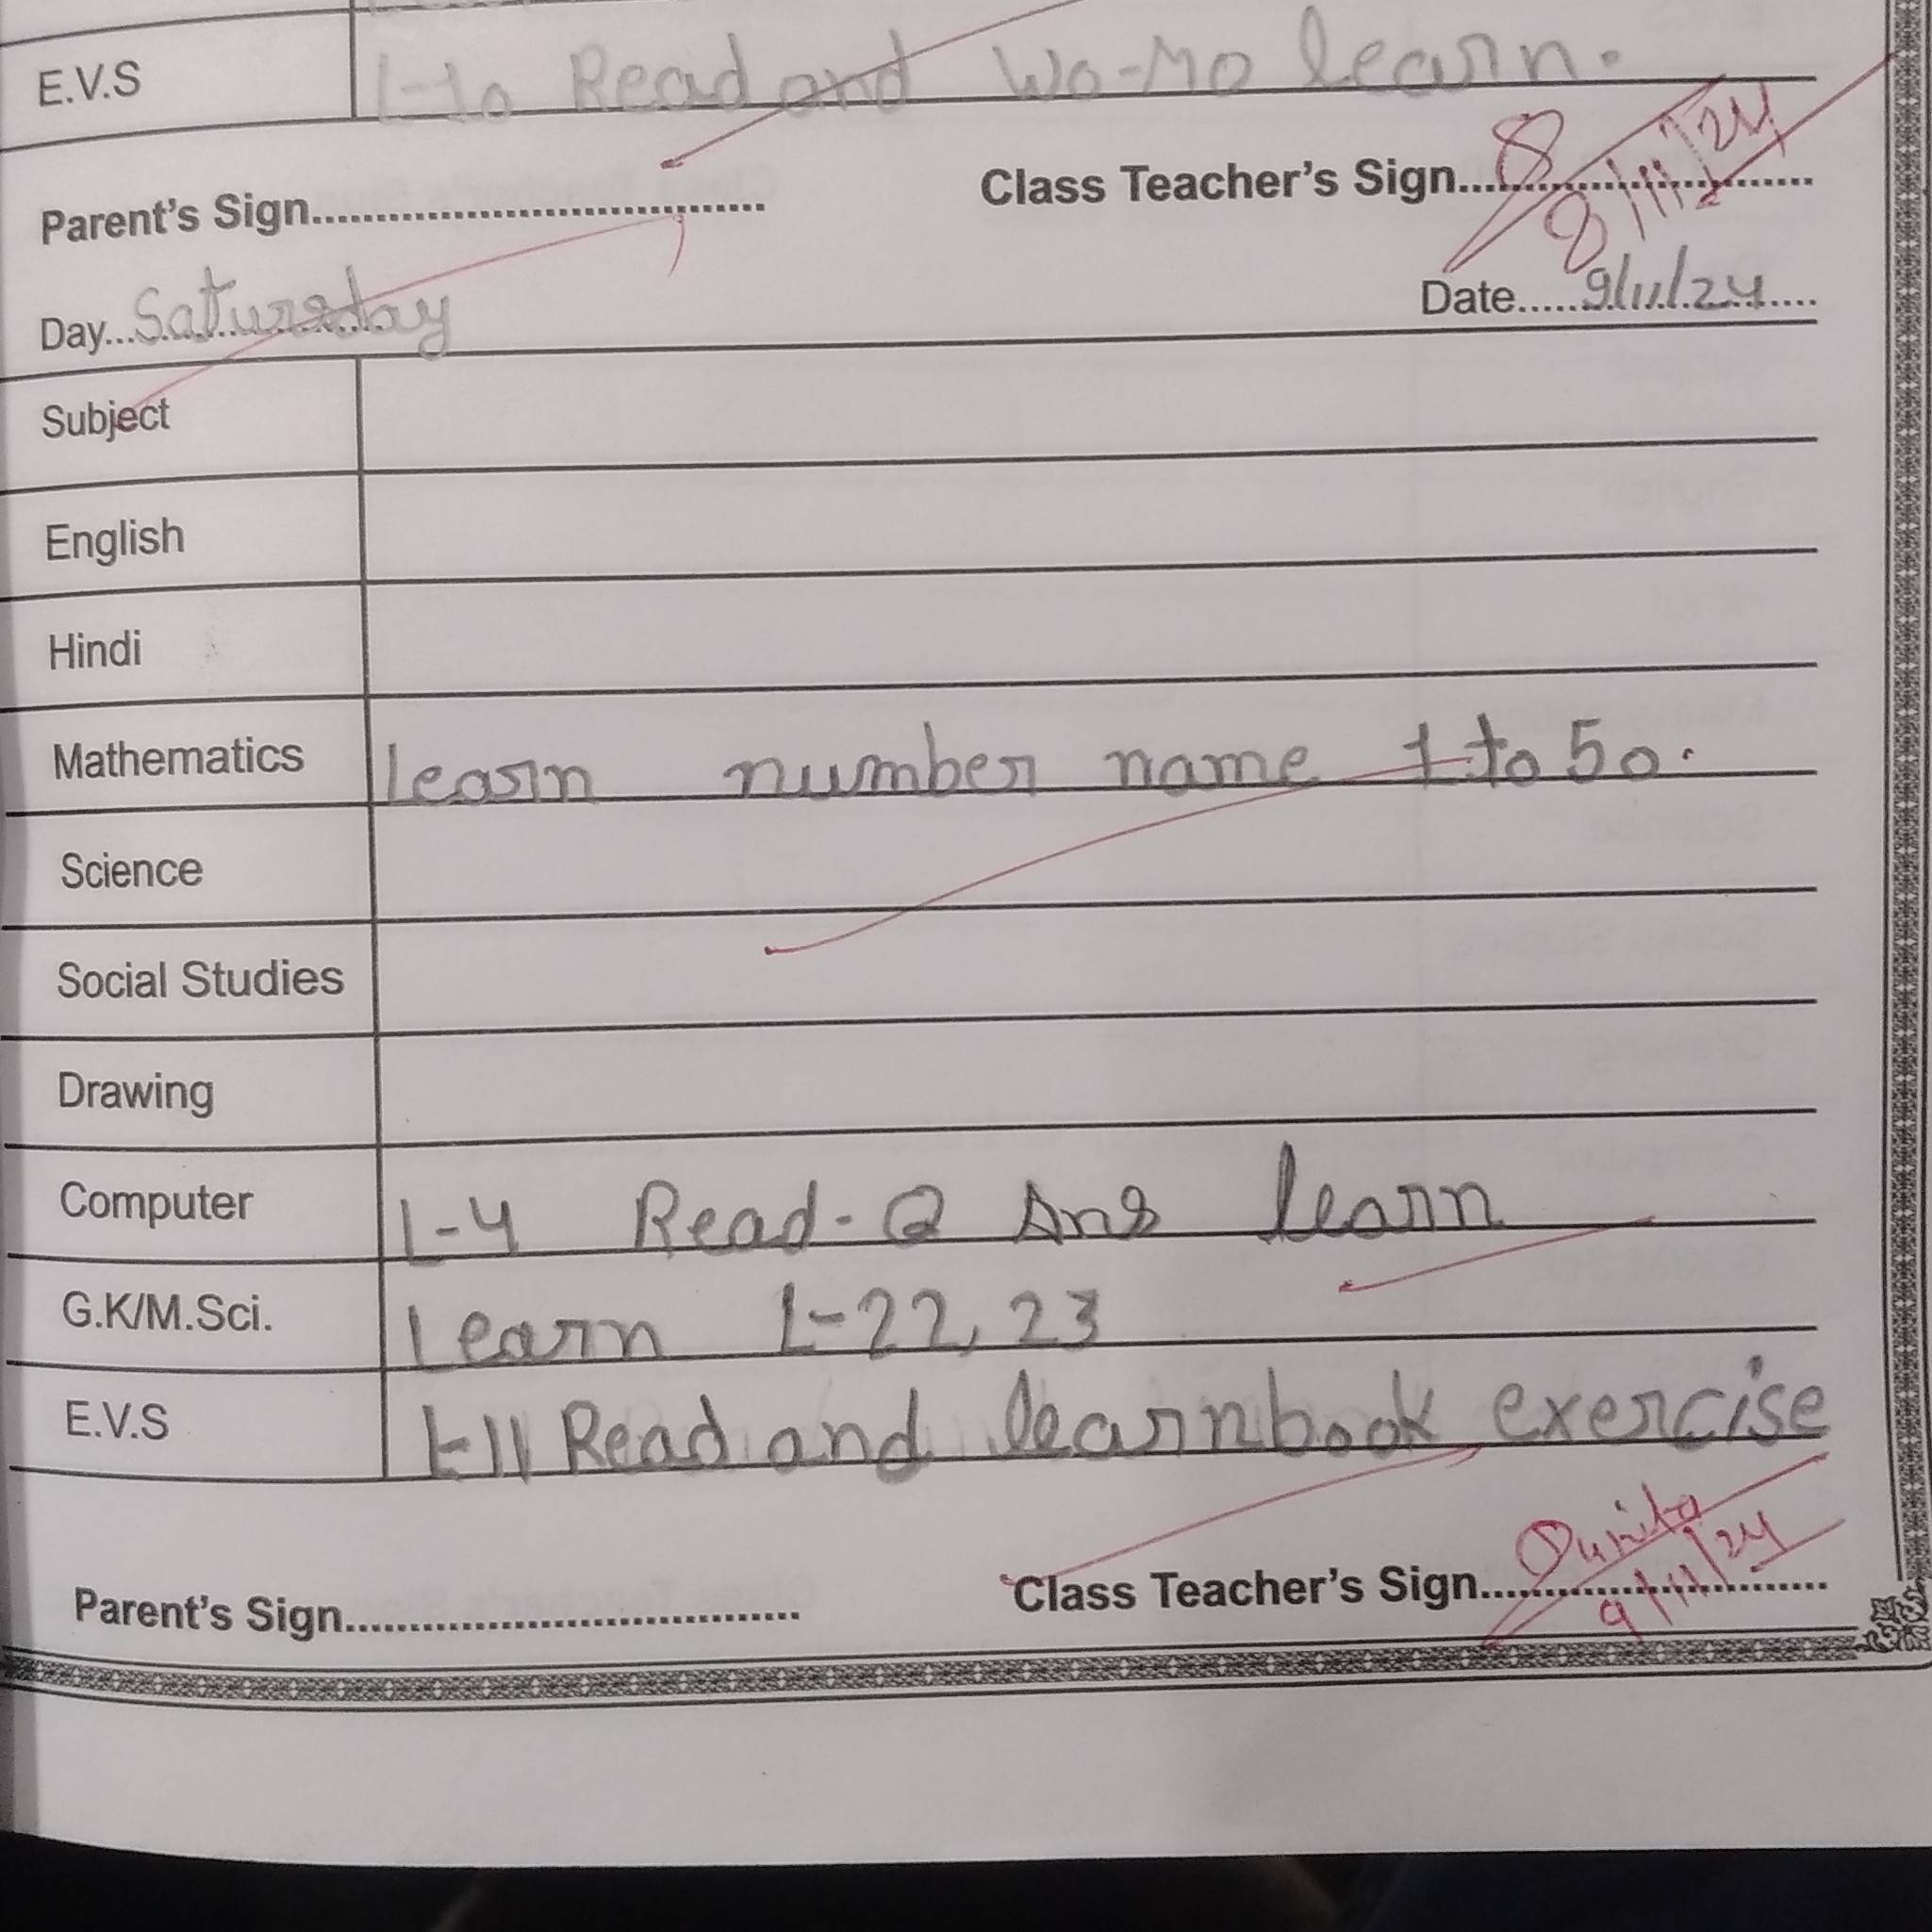 E.V.S L-10 Read and Wo-Mo learn.
Parent's Sign.................................... Class Teacher's Sign.................... 8/11/24
Day...Saturday Date.....9/11/24....
Subject
English
Hindi
Mathematics learn number name 1 to 50.
Science
Social Studies
Drawing
Computer L-4 Read-Q Ans learn
G.K/M.Sci. learn L-22, 23
E.V.S L-11 Read and learn book exercise
Parent's Sign.................................... Class Teacher's Sign.................... 9/11/24